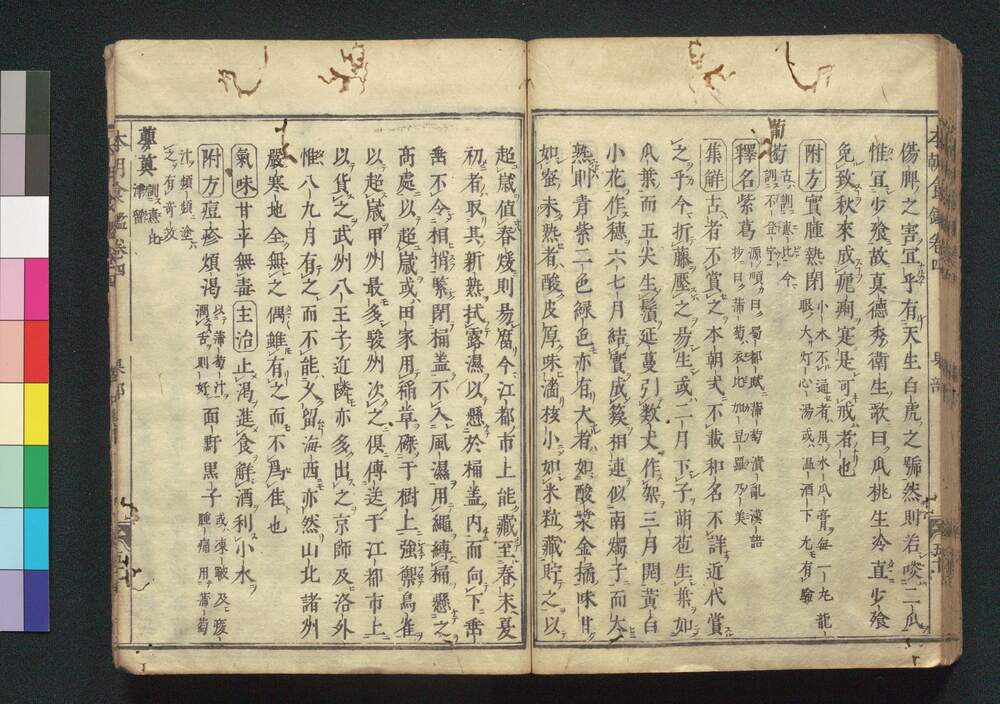 傷脾之害宜乎有天生白虎之號然則若啖二瓜
惟宜少飱故真德秀衛生歌曰瓜桃生冷直少飱
免致秋來成瘧痢寔是可戒者也
附方實腫熱閉小水不通者用水瓜膏每一丸龍
眼大灯心湯或温酒下尤有驗
葡萄古訓惠比今
訓不登宇
釋名紫葛源順曰蜀都賦蒲萄潰亂漢語
抄曰蒲萄衣比加豆羅乃美
集解古者不賞之本朝式不載和名不詳近代賞
之乎今折藤壓之易生或二月下子萌苞生葉如
瓜葉而五尖生鬚延蔓引數丈作架三月開黄白
小花作穗六七月結實成簇相連似南燭子而大
熟則青紫二色緑色亦有大者如酸漿金橘味甘
如蜜未熟者酸皮厚味濇核小如米粒藏貯之以
超歳值春煖則易腐今江都市上能藏至春末夏
初者取其新熟拭露濕以懸於桶盖内而向下垂
垂不令相捎緊閉桶盖不入風濕用繩縛桶懸之
高處以超歳或田家用稲草磔于樹上強禦鳥雀
以超歳甲州最多駿州次之倶傳送于江都市上
以貨之武州八王子近隣亦多出之京師及洛外
惟八九月有之而不能久留海西亦然山北諸州
嚴寒地全無之偶雖有之而不爲佳也
氣味甘平無毒主治止渇進食解酒利小水
附方痘疹煩渇以蒲萄汁
潤舌則好面䵟黒子或凍皸及痠
腫痛用蒲萄
汁頻頻塗
之有奇效
蘡薁訓惠比
本朝食鑑卷四
果部